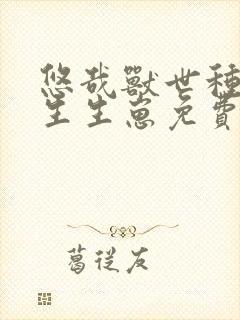 悠哉獸世種
生生崽免費
葛從友